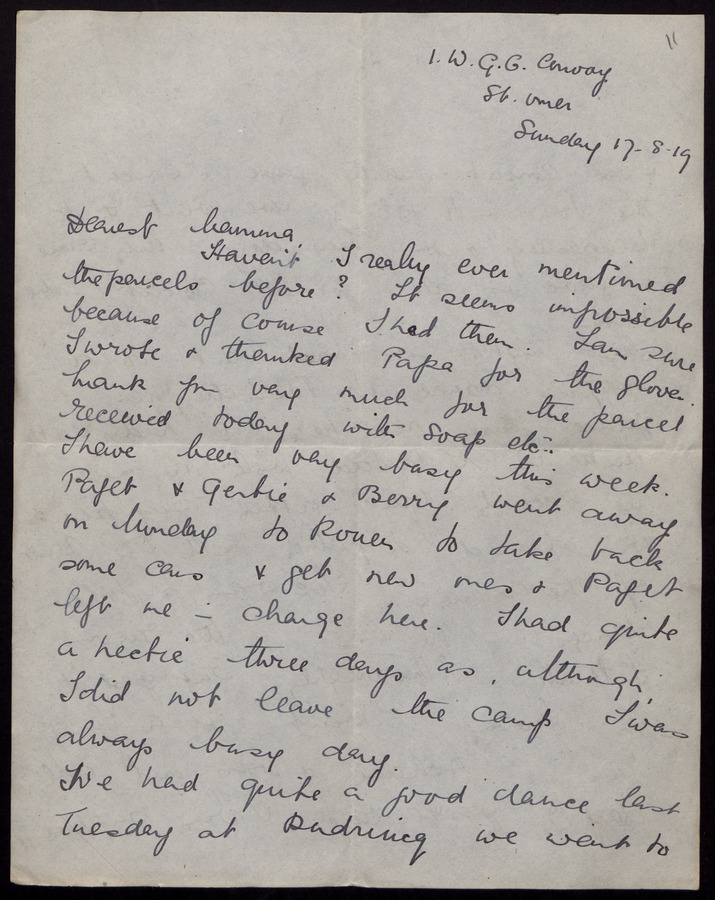 11
1. W. G. C. Convoy
St. Omer
Sunday 17-8-19
Dearest Mamma,
Haven't I really ever mentioned
the parcels before? It seems impossible
because of course I had them. I am sure
I wrote & thanked Papa for the gloves.
Thank you very much for the parcel
received today with soap etc..
I have been very busy this week.
Paget & Gertie & Berry went away
on Monday to Rouen to take back
some cars & get new ones & Paget
left me in charge here. I had quite
a hectic three days as, although,
I did not leave the camp I was
always busy day.
We had quite a good dance last
Tuesday at we went to